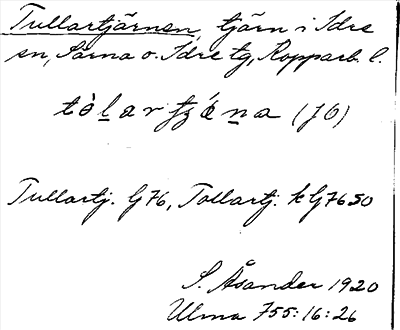 Tullartjärnen, tjärn i Idre
sn, Särna o. Idre tg, Kopparb. l.
tòlartʃǽna (JO)
Tullartj. G76, Tollartj. k G7650
S. Åsander 1920
Ulma 755:16:26